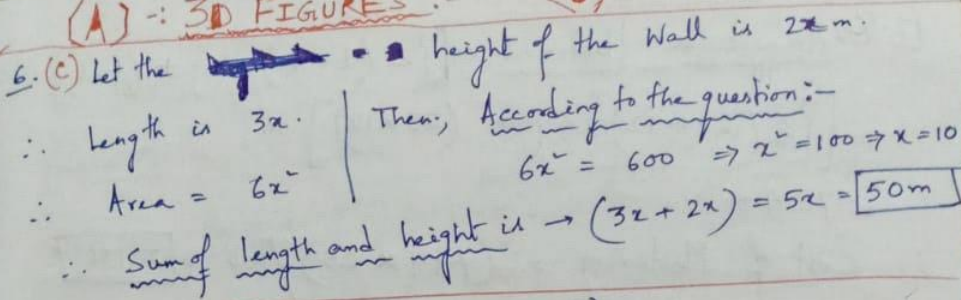 (A) -: 3D FIGURES
6. (C) Let the height of the Wall is 2x m.
∴ Length is 3x.
∴ Area = 6x²
Then, According to the question:-
6x² = 600 ⇒ x² = 100 ⇒ x = 10
∴ Sum of length and height is → (3x + 2x) = 5x = 50m